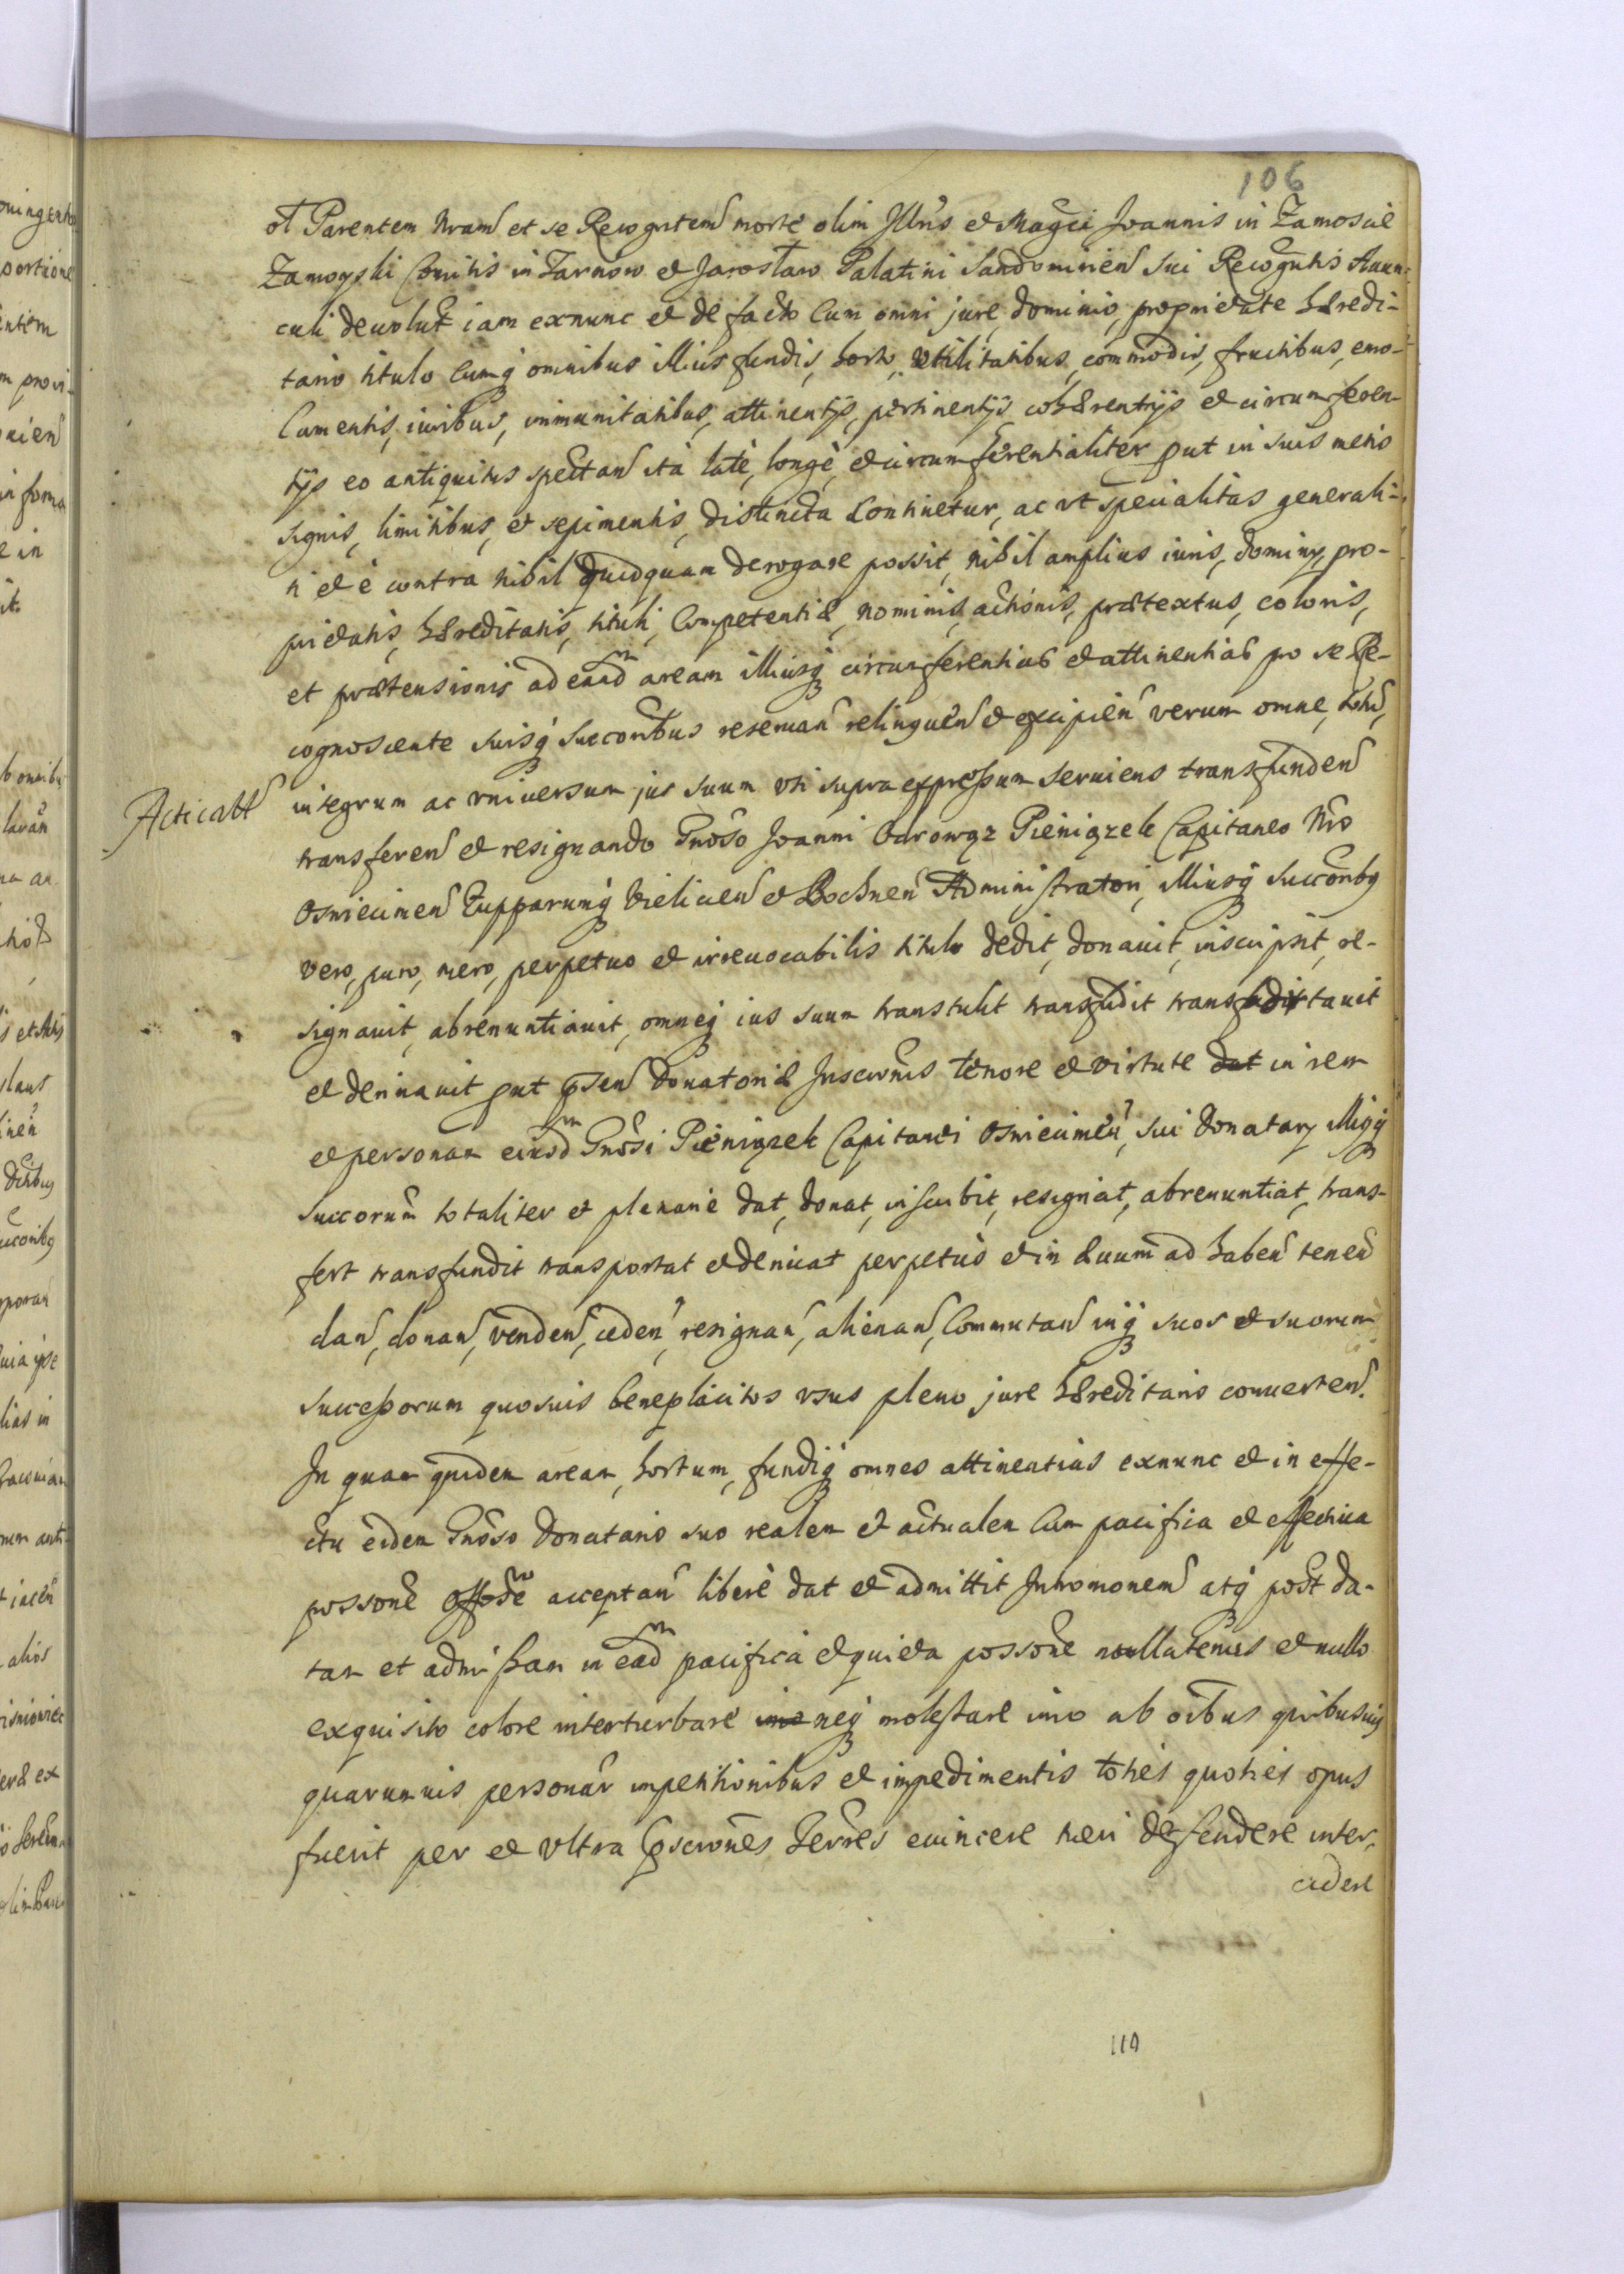 106
ol Parentem Nram et se Recogntem morte olim Illris et Magci Joannis in Zamoscie
Zamoyski Comitis in Tarnow et Jarosław Palatini Sandomirien sui Recogntis Auun-
culi deuolut iam exnunc et de facto Cum omni jure, dominio, proprietate hæredi-
tario titulo Cumq omnibus illius fundis, horto, utilitatibus, commodis, fructibus, emo-
lumentis, iuribus, immunitatibus, attinentijs, pertinentijs, cohærentijs et circumferen-
tijs eo antiquitus spectan ita late, longè, et circumferentialiter put in suis metis
signis, limitibus, et sepimentis, distincta Continetur, ac vt specialitas generali-
ti et è contra nihil quidquam derogare possit, nihil amplius iuris, dominij, pro-
prietatis, hæreditatis, tituli, Competentiæ, nominis, actionis, prætextus, coloris,
et prætensionis ad eand aream illiusq circumferentias et attinentias pro se Re-
cognoscente suisq succoribus reseruan relinquen et excipien verum omne, totu,
Acticatt
integrum ac vniuersum jus suum vti supra expressum seruiens transfunden
transferen et resignando Gnoso Joanni Odrowąz Pieniązek Capitaneo Nro
Osniecimen Zupparumq Vielicen et Bochnen Administratori, illiusq succoribq
vero, puro, mero, perpetuo et irreuocabilis titulo dedit, donauit, inscripsit, re-
signauit, abrenuntiauit, omneq ius suum transtulit transfudit
et deriuauit put psen Donatoriæ Inscrnis tenore et virtute dat in rem
et personam eiusd Gnosi Pieniązek Capitanei Osniecimen, sui Donatarij illiqq
succorum totaliter et plenarie dat, donat, inscribit, resignat, abrenuntiat, trans-
fert transfundit transportat et deriuat perpetuò et in æuum ad haben tenen
dan, donan, venden, ceden, resignan, alienan, Commutan inq suos et suorum
successorum quosuis beneplacitos vsus pleno jure hæreditario conuerten.
In quam quidem aream, hortum, fundiq omnes attinentias exnunc et in effe-
ctu eidem Gnoso Donatario suo realem et actualem Cum pacifica et effectiua
possone acceptan liberè dat et admittit Intromonem atq post da-
tam et admissam in ead pacifica et quieta possone nullatenus et nullo
exquisito colore interturbare imo neq molestare imo ab oibus quibusuis
quarumuis personar impetitionibus et impedimentis toties quoties opus
fuerit per et vltra pscrones terres euincere tueri defendere inter,
cedere
110